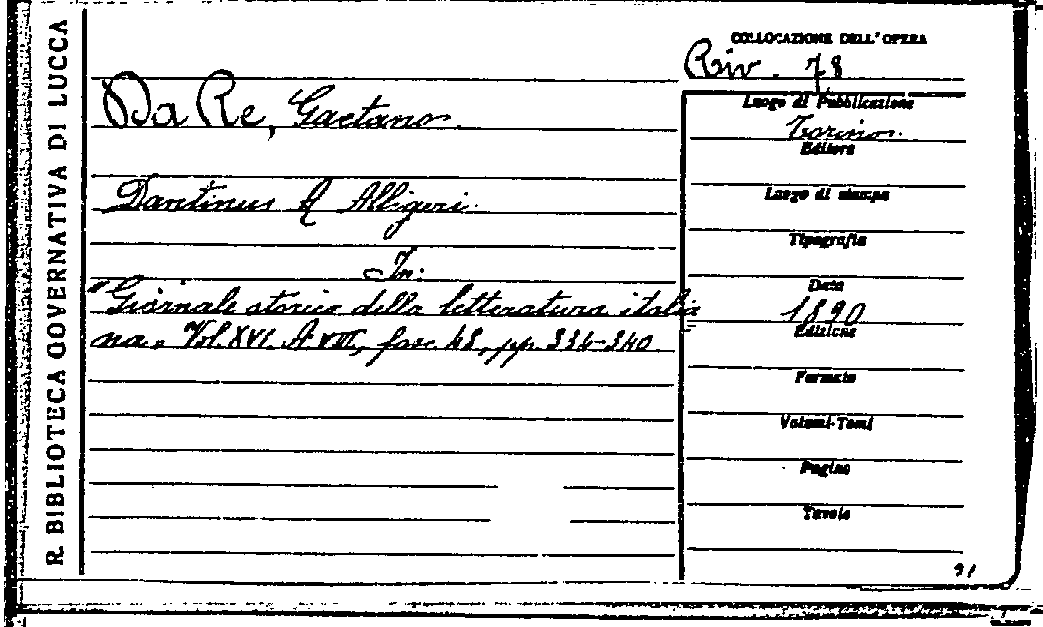 R. BIBLIOTECA GOVERNATIVA DI LUCCA
COLLOCAZIONE DELL'OPERA
Riv. 78
Da Re, Gaetano.
Dantinus q Alligeri.
In:
"Giornale storico della letteratura italia=
na" Vol. XVI. A. VIII, fasc. 48, pp. 334-340
Luogo di Pubblicazione
Torino.
Editore
Luogo di stampa
Tipografia
Data
1890
Edizione
Formato
Volumi-Tomi
Pagine
Tavole